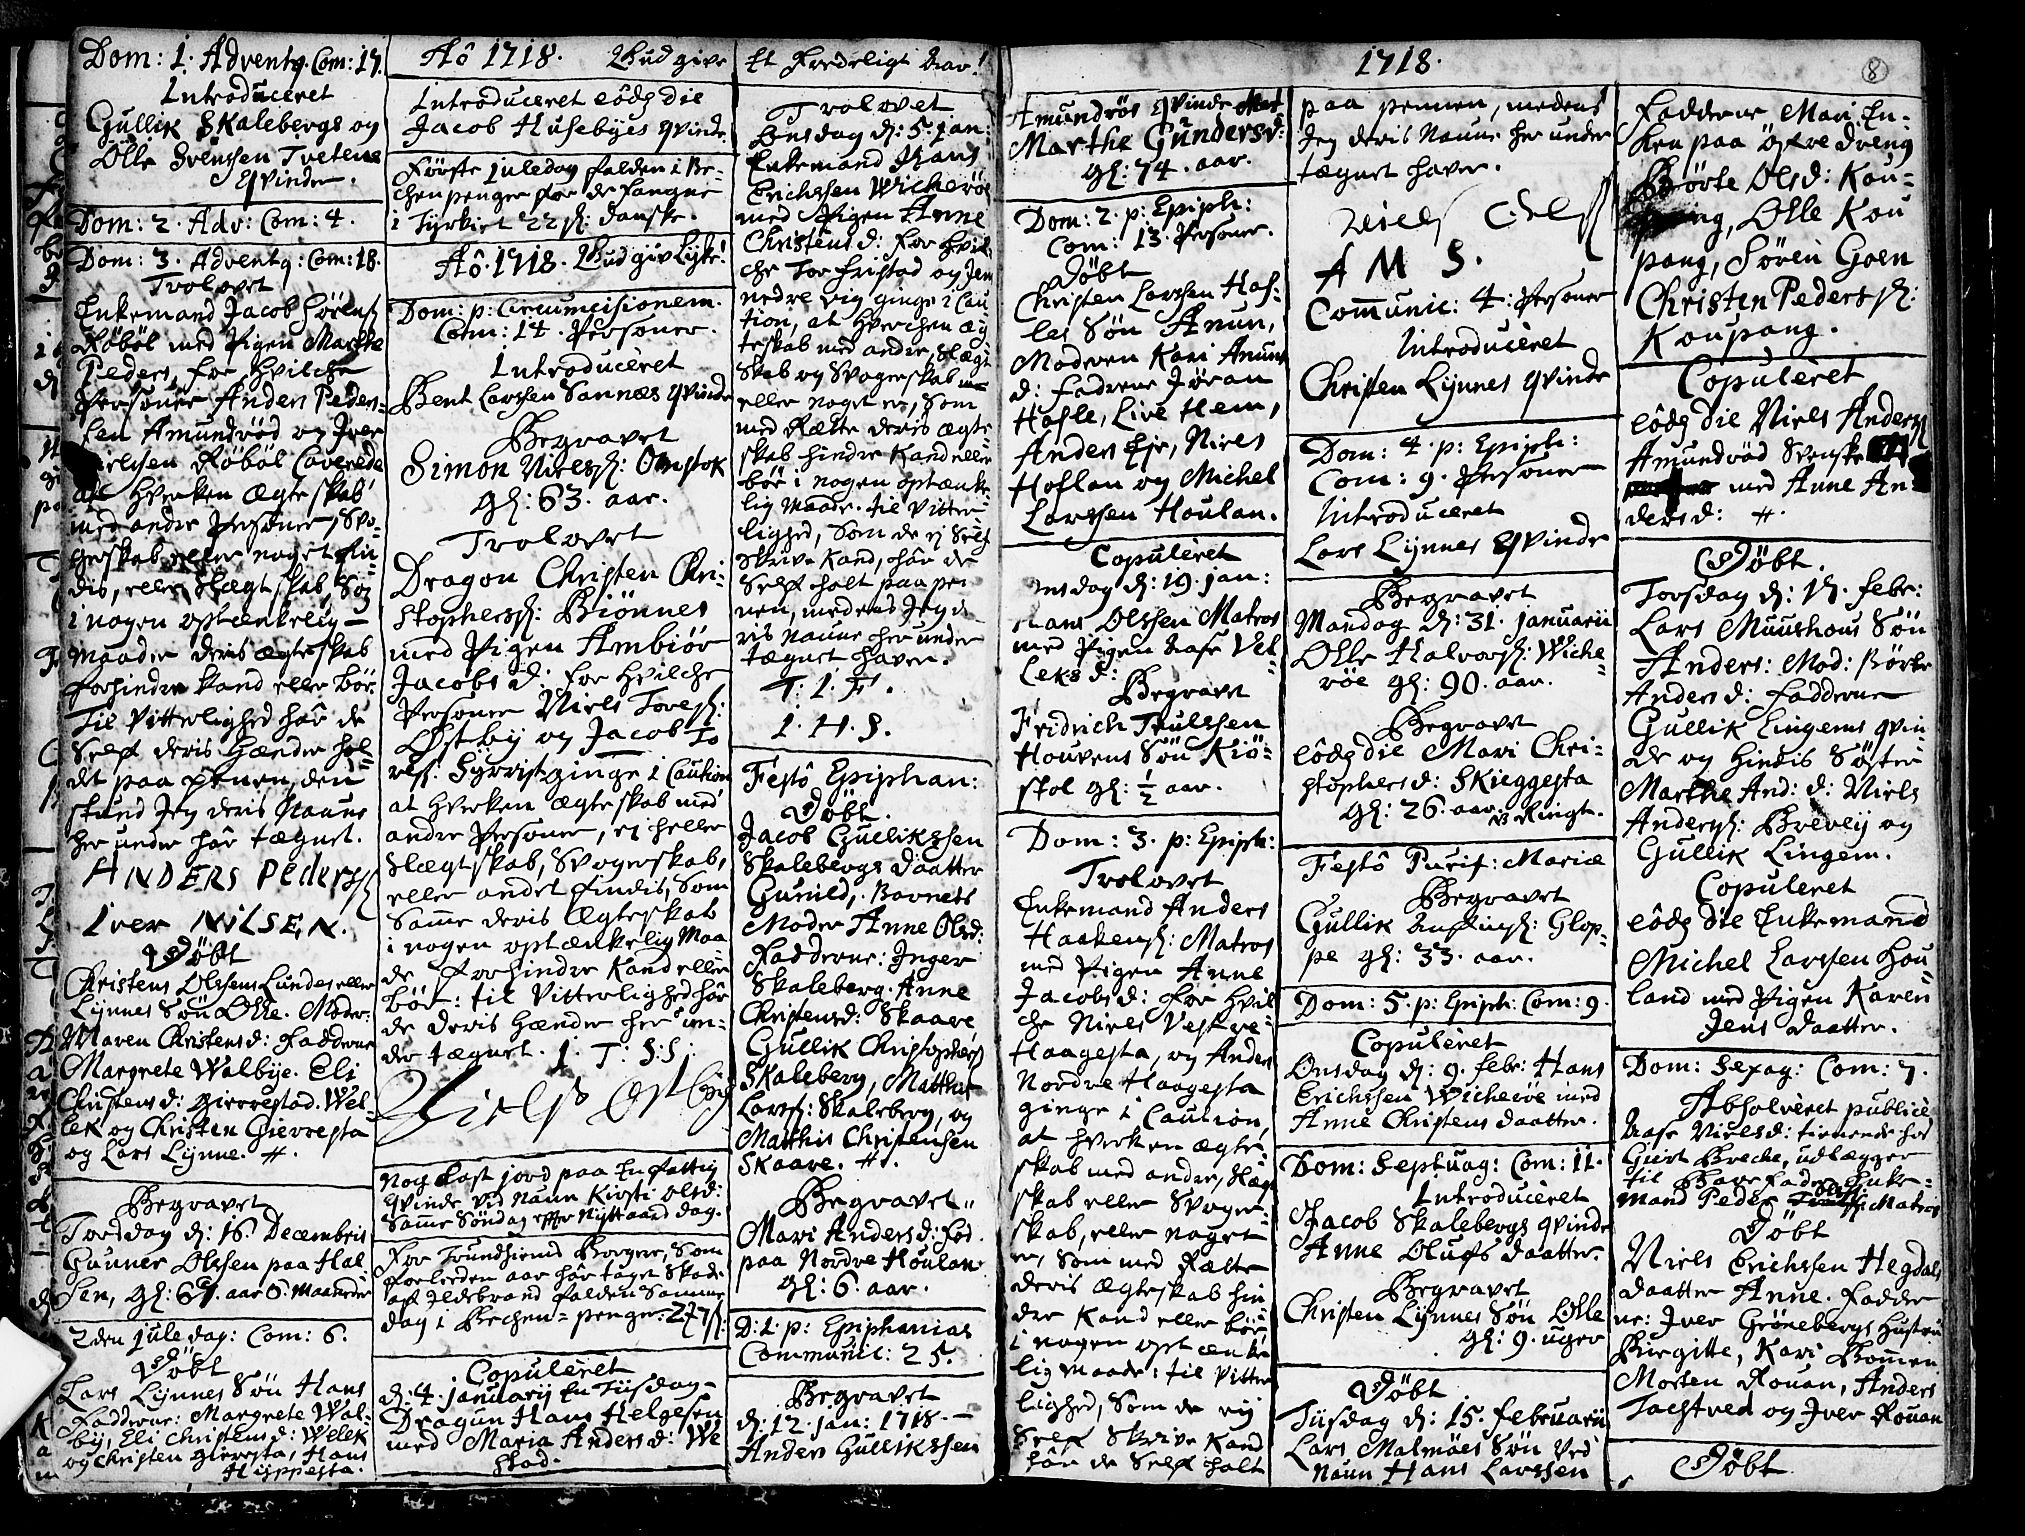 Dom: 1. Adventq. Com: 17.
Introduceret
Gullik Skalebergs og
Olle Svenssen Tvetene
qvinder.
Dom: 2. Adv: Com: 4.
Dom: 3. Adventq: Com: 18.
Trolovet
Enkemand Jacob Sörens
Röböl med Pigen Marthe
Peders, for hvilche
Personer Anders Peder-
sen Amundröd og Iver
Nielssen Röböl Caverede
att hverken Ægteskab
med andre Personer, Svo-
gerskab eller noget fin-
dis, eller Slægtskab, Som
i nogen optænkelig
maader deris ægteskab
forhindre kand eller bör.
Til Vitterlighed hâr de
Self deris Hænder hol-
dt paa pennen, den
stund Jeg deris Naune
her under hâr tægnet.
ANDERS Pederss
Iver NilSEN.
Döbt
Christens Olssens Lundes eller
Lÿnnes Sön Olle. Moder:
Maren Christensd: Fadderne
Margrete Walbÿe. Eli
Christensd: Gierrestad. Wel-
lek og Christen Gierresta
og Lars Lÿnne. #.
Begravet
Torsdag d: 16. Decembris
Gunner Olssen paa Hal
sen, gl: 67. aar 6. Maaneder
2den juledag: Com: 6.
Döbt
Lars Lÿnnes Sön Hans
Fadderne: Margrete Wal-
bÿ, Eli Christensd: Wellek
og Christen Gierresta, Hans
Hippesta.
Aô 1718. Gud give
Introduceret eôdq die
Jacob Husebyes qvinde.
Förste Juledag falden i Be-
chenpenger for de fangne
i Tÿrkiet 22 s: danske.
Aô. 1718. Gud giv Lyke!
Dom: p: Circumcisionem.
Com: 14 Personer.
Introduceret
Bent Larssen Sannæs qvinde
Begravet
Simon Nielss: Omstok
gl: 63. aar.
Trolovet
Dragon Christen Chri-
stophers: Biönnes
med Pigen Ambiör
Jacobsd: for hvilche
Personer Niels Toress:
Östbÿ og Jacob To
ress: Syrrist ginge i Caution
at hverken ægteskab med
andre Personer, ej heller
Slægtskab, Svogerskab,
eller andet findis, Som
Samme deris Ægteskab
i nogen optænkelig Maa
de forhindre Kand eller
bör: til Vitterlighed hâr
de deris Hænder her un-
der tægnet. I. T: S:S:
Niels Ostby
Nog kast jord paa en fattig
qvinde ved Naun Kirsti Olsd:
Samme Söndag effter Nÿttaars dag.
For Trundhiems Borgere, Som
forleeden aar hâr taget Skade
af Ildebrand falden Samme
dag i Bechen-penger: 27 s:
Copuleret
d: 4. Januarij En Tiisdag
Dragun Hans Helgesen
med Maria Andersd: We
stad.
Et Fredeligt Aar!
Trolovet
Onsdag d: 5. Jan:
Enkemand Hans
Erichssen Wicheröe
med Pigen Anne
Christensd: for hvil
che Tor Fristad og Jen
nedre Vig ginge i Cau
tion, at hverchen æg
teskab med andre, Slægt
skab og Svogerskab
eller noget er, Som
med Rætte deris ægte
skab hindre Kand eller
bör i nogen optænke-
lig maade. til Vitter-
lighed, Som de ej Self
Skrive Kand, hâr de
Self holt paa pen
nen, medens Jeg de
ris Naune her under
tægnet haver.
T. I. F.
I. H. S.
Festô Epiphan:
Döbt.
Jacob Gullikssen
Skalebergs Daatter
Gunild, Barnets
Moder Anne Olsd:
Fadderne: Inger
Skaleberg. Anne
Christensd: Skaare
Gullik Christophers
Skaleberg, Matthis
Larss: Skaleberg, og
Matthis Christensen
Skaare. #.
Begravet
Mari Andersd: fød
paa Nordre Houlan
gl: 6. aar.
D: 1. p: Epiphanias
Communic: 25.
Begravet
d: 12. Jan: 1718.
Anders Gullikssen
1718.
8
Amundrös qvinde
Marthe Gundersd:
gl: 74. aar.
Dom: 2. p: Epiph:
Com: 13. Personer.
Döbt
Christen Larssen Haf-
les Sön Amun,
Moderen Kari Amun
d: Fadrene Jöran
Hafle, Live Hem,
Anders Eje, Niels
Hoflan og Michel
Larssen Houlan.
Copuleret
Onsdag d: 19. Jan:
Hans Olssen Matros
med Pigen Aase Vel-
leks d:
Begravet
Fridrich Trulssen
Houvens Sön Kiö-
skol gl: ½ aar.
Dom: 3. p: Epiph:
Trolovet
Enkemand Anders
Haakens: Matros
med Pigen Anne
Jacobsd: for hvil
che Niels Vestre-
Haagesta, og Anders
Nordre Haagesta
ginge i Caution,
at hverken ægte
skab med andre, Slæg
skab eller Svoger-
skab, eller noget
er, Som med Rætte
deris ægteskab hin
dre Kand eller bör
i nogen optænke
lig maade: til Vitter
lighed, Som de eÿ
Self Skrive Kand
hâr de Self holt
paa pennen, medens
Jeg deris Naune her under
tægnet haver.
Niels Oels
A M S.
Com̄unic: 4: Personer
Introduceret
Christen Lÿnnes qvinde
Dom: 4. p: Epiph:
Com: 9. Personer
Introduceret
Lars Lÿnnes qvinde
Begravet
Mandag d: 31. Januarii
Olle Halvors: Wiche-
röe gl: 90. aar.
Begravet
eôdq die Mari Chri-
stophersd: Skieggesta
gl: 26. aar. Ringt.
Festô Purif: Mariæ
Begravet
Gullik Anfins: Glop-
pe gl: 33. aar.
Dom: 5. p: Epiph: Com: 9.
Copuleret
Onsdag d: 9. Febr: Hans
Erichssen Wicheröe med
Anne Christens daatter.
Dom: Septuag: Com: 11.
Introduceret
Jacob Skalebergs qvinde
Anne Olufs daatter.
Begravet
Christen Lÿnnes Sön Olle
gl: 9. uger
Döbt
Tiisdag d: 15. Februarii
Lars Malmöes Sön ved
Naun Hans Larssen
Fadderne Mari En-
ken paa Öfre Dreng
Börte Olsd: Kou-
pang, Olle Kou
pang, Sören Goen
Christen Peders s:
Koupang.
Copuleret
eôdq die Niels Anderss
Amundröd Svenske
med Anne An-
dersd: #.
Döbt.
Torsdag d: 17. Febr:
Lars Muushous Sön
Anders: Mod: Börte
Andersd: Fadderne
Gullik Lingems qvin
de og hindis Söster
Marthe And: d: Niels
Anderss: Brevej og
Gullik Lingem.
Copuleret
eôdq die Enkemand
Michel Larssen Hou-
land med Pigen Karen
Jens daatter.
Dom: Sexag: Com: 7.
Absolveret publicè
Aase Nielsd: tienende hos
Giert Breche, udlægger
til Barefader Enke-
mand Peder Olss Matros
Döbt
Niels Erichssen Hegdals
daatter Anne. Fadder
ne: Iver Grönebergs Hustru
Birgitte, Kari Bommen
Morten Rouan, Anders
Tachtved og Iver Rouan
Döbt